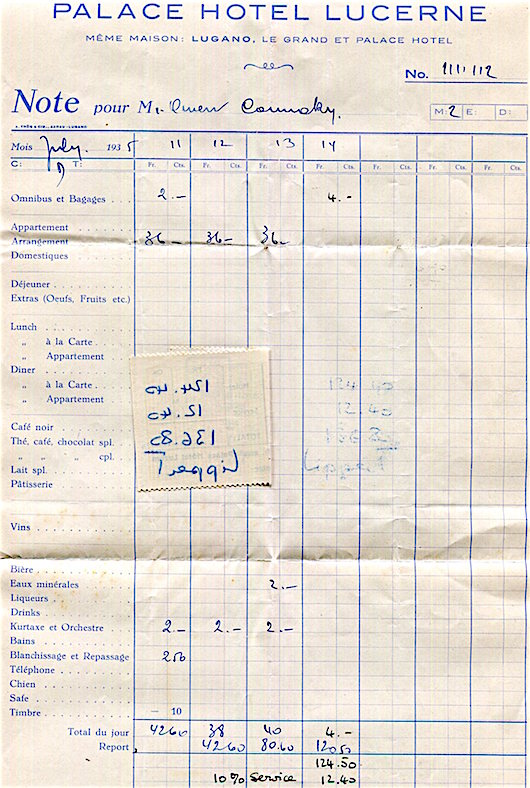 PALACE HOTEL LUCERNE
MÊME MAISON: LUGANO, LE GRAND ET PALACE HOTEL
No. 111,112
Note pour Mr
M: 2 E: D:
Mois July. 1935 11 12 13 14
C: T: Fr. Cts. Fr. Cts. Fr. Cts. Fr. Cts. Fr. Cts. Fr. Cts. Fr. Cts.
Omnibus et Bagages 2.— 4.-
Appartement
Arrangement 36— 36— 36—
Domestiques
Déjeuner
Extras (Oeufs, Fruits etc.)
Lunch
„ à la Carte
„ Appartement
Diner
„ à la Carte 124.40
„ Appartement 12.40
Café noir 136.80
Thé, café, chocolat spl.
„ „ „ cpl.
Lait spl.
Pâtisserie
Vins
Bière
Eaux minérales 2.—
Liqueurs
Drinks
Kurtaxe et Orchestre 2.— 2.— 2.—
Bains
Blanchissage et Repassage 250
Téléphone
Chien
Safe
Timbre — 10
Total du jour 4260 38 40 4.—
Report 4260 80.60 12050
124.50
10% Service 12.40